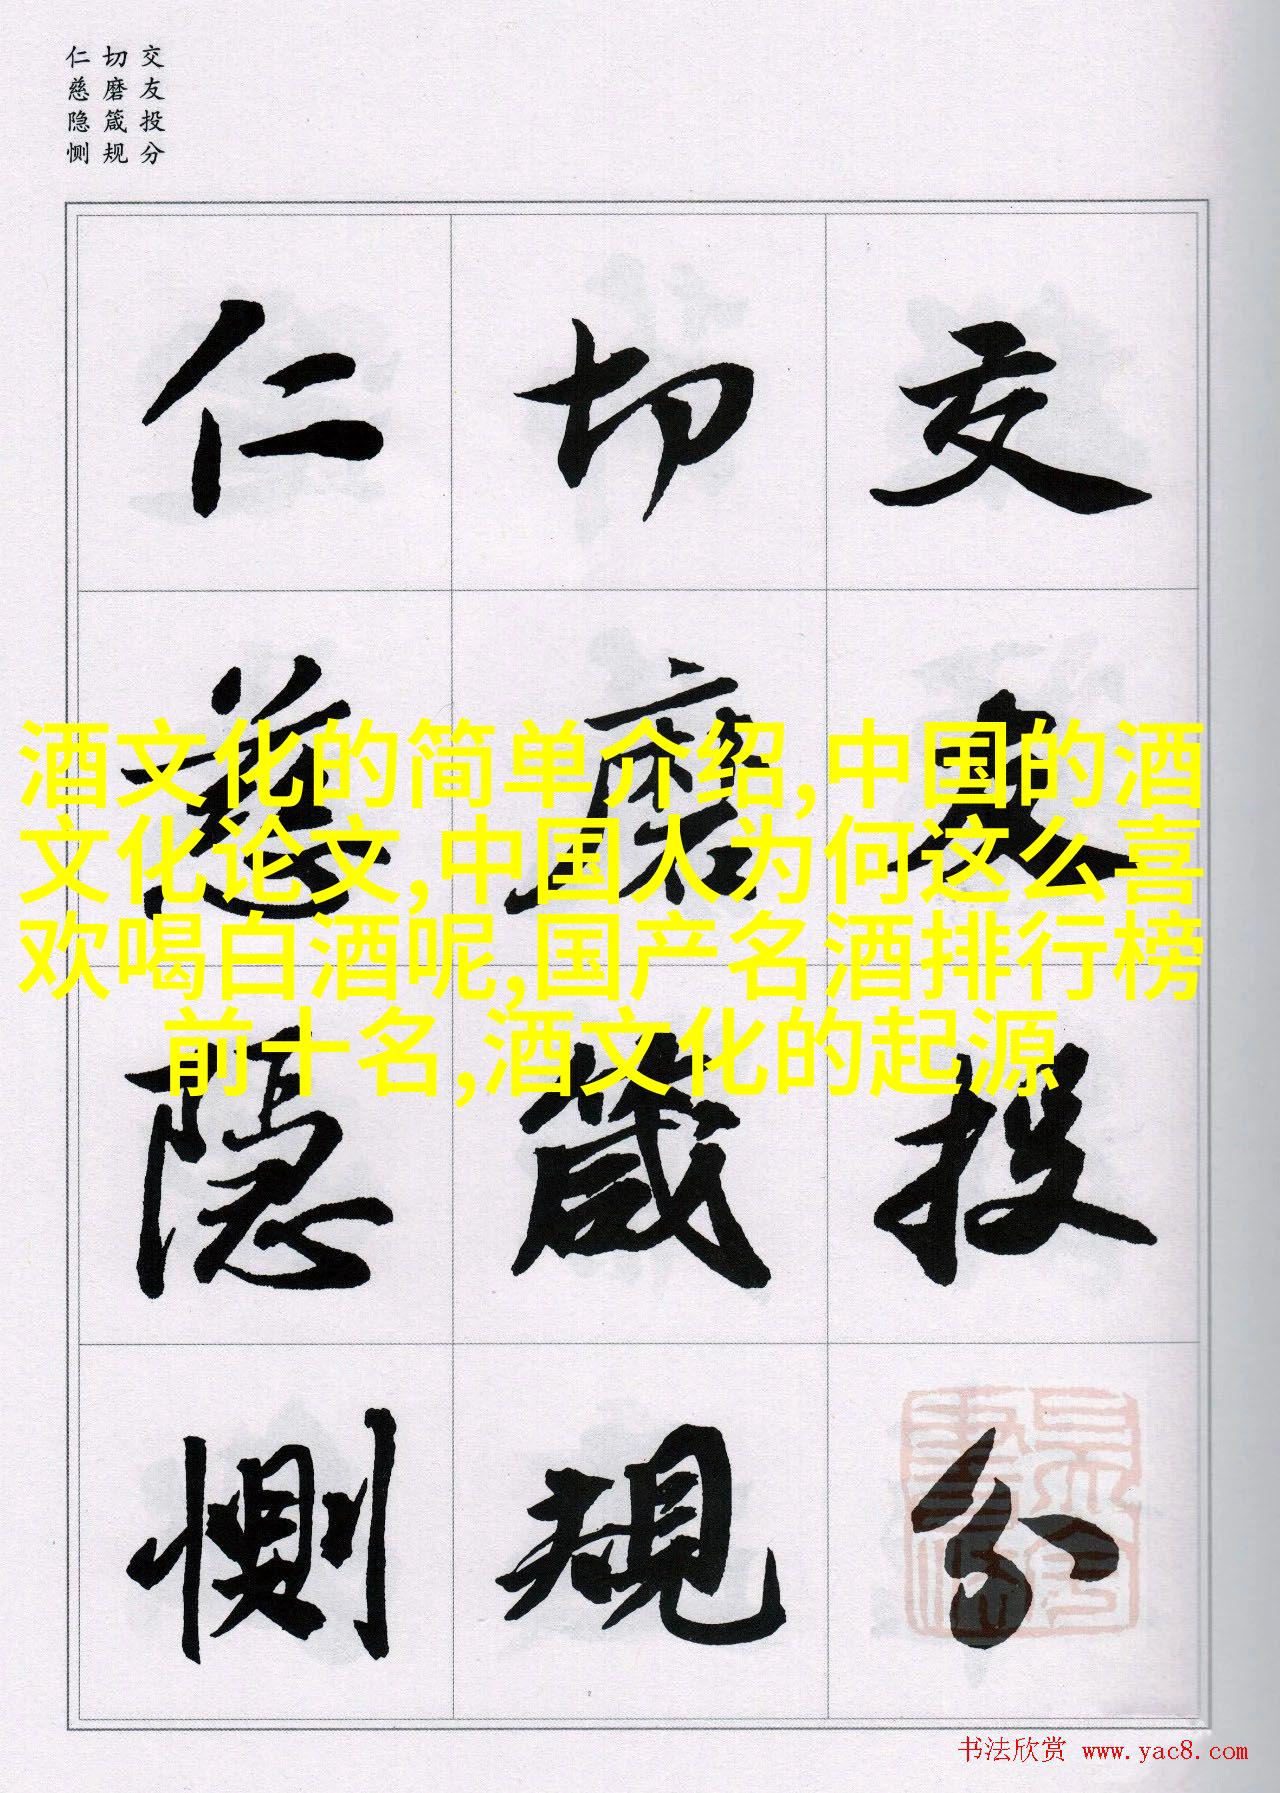 交友投分
切磨箴规
仁慈隐恻
交友投分
切磨箴規
仁慈隐恻
酒文化的简单介绍,中国的酒
文化论文,中国人为何这么喜
欢喝白酒呢,国产名酒排行榜
前十名,酒文化的起源
书法欣赏 www.yac8.com